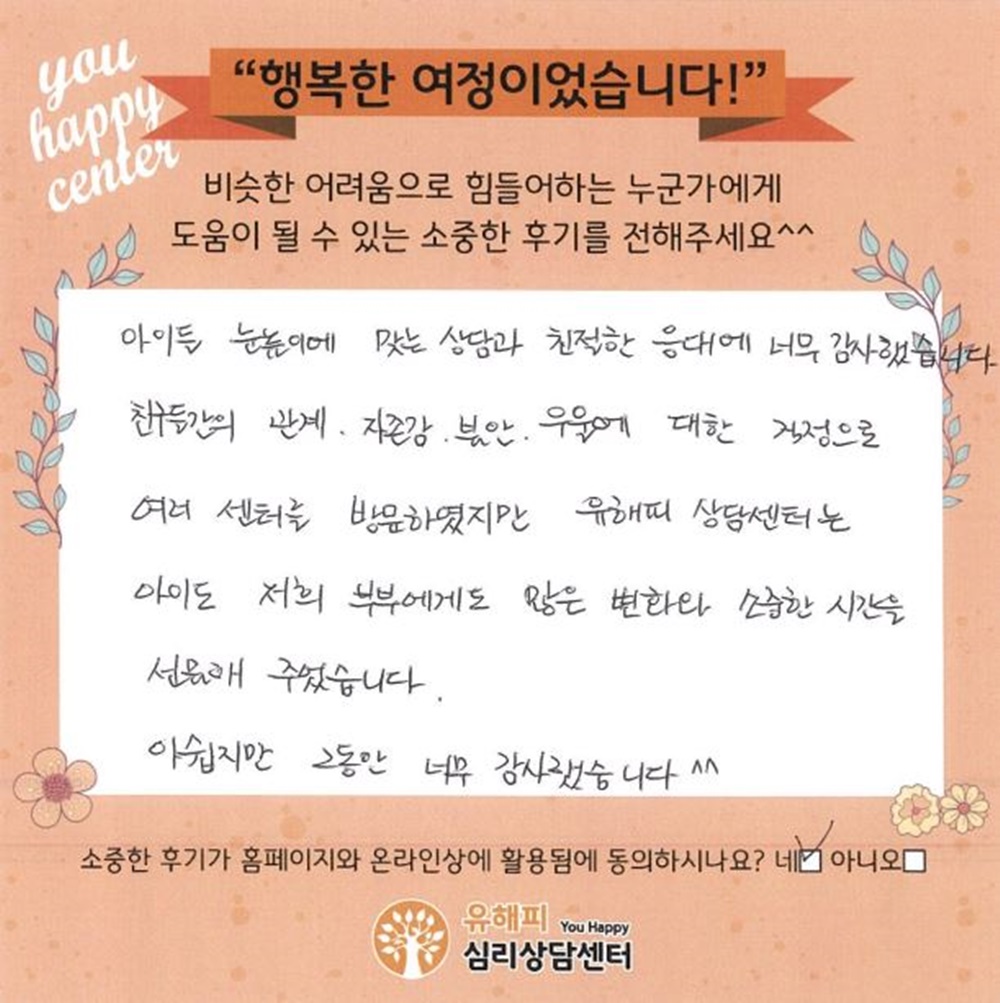 you
happy
center
“행복한 여정이었습니다!”
비슷한 어려움으로 힘들어하는 누군가에게
도움이 될 수 있는 소중한 후기를 전해주세요^^
아이들 눈높이에 맞는 상담과 친절한 응대에 너무 감사했습니다
친구들간의 관계. 자존감. 불안. 우울에 대한 걱정으로
여러 센터를 방문하였지만 유해피 상담센터는
아이도 저희 부부에게도 많은 변화와 소중한 시간을
선물해 주었습니다.
아쉽지만 그동안 너무 감사했습니다 ^^
소중한 후기가 홈페이지와 온라인상에 활용됨에 동의하시나요? 네☑ 아니오☐
유해피 You Happy
심리상담센터